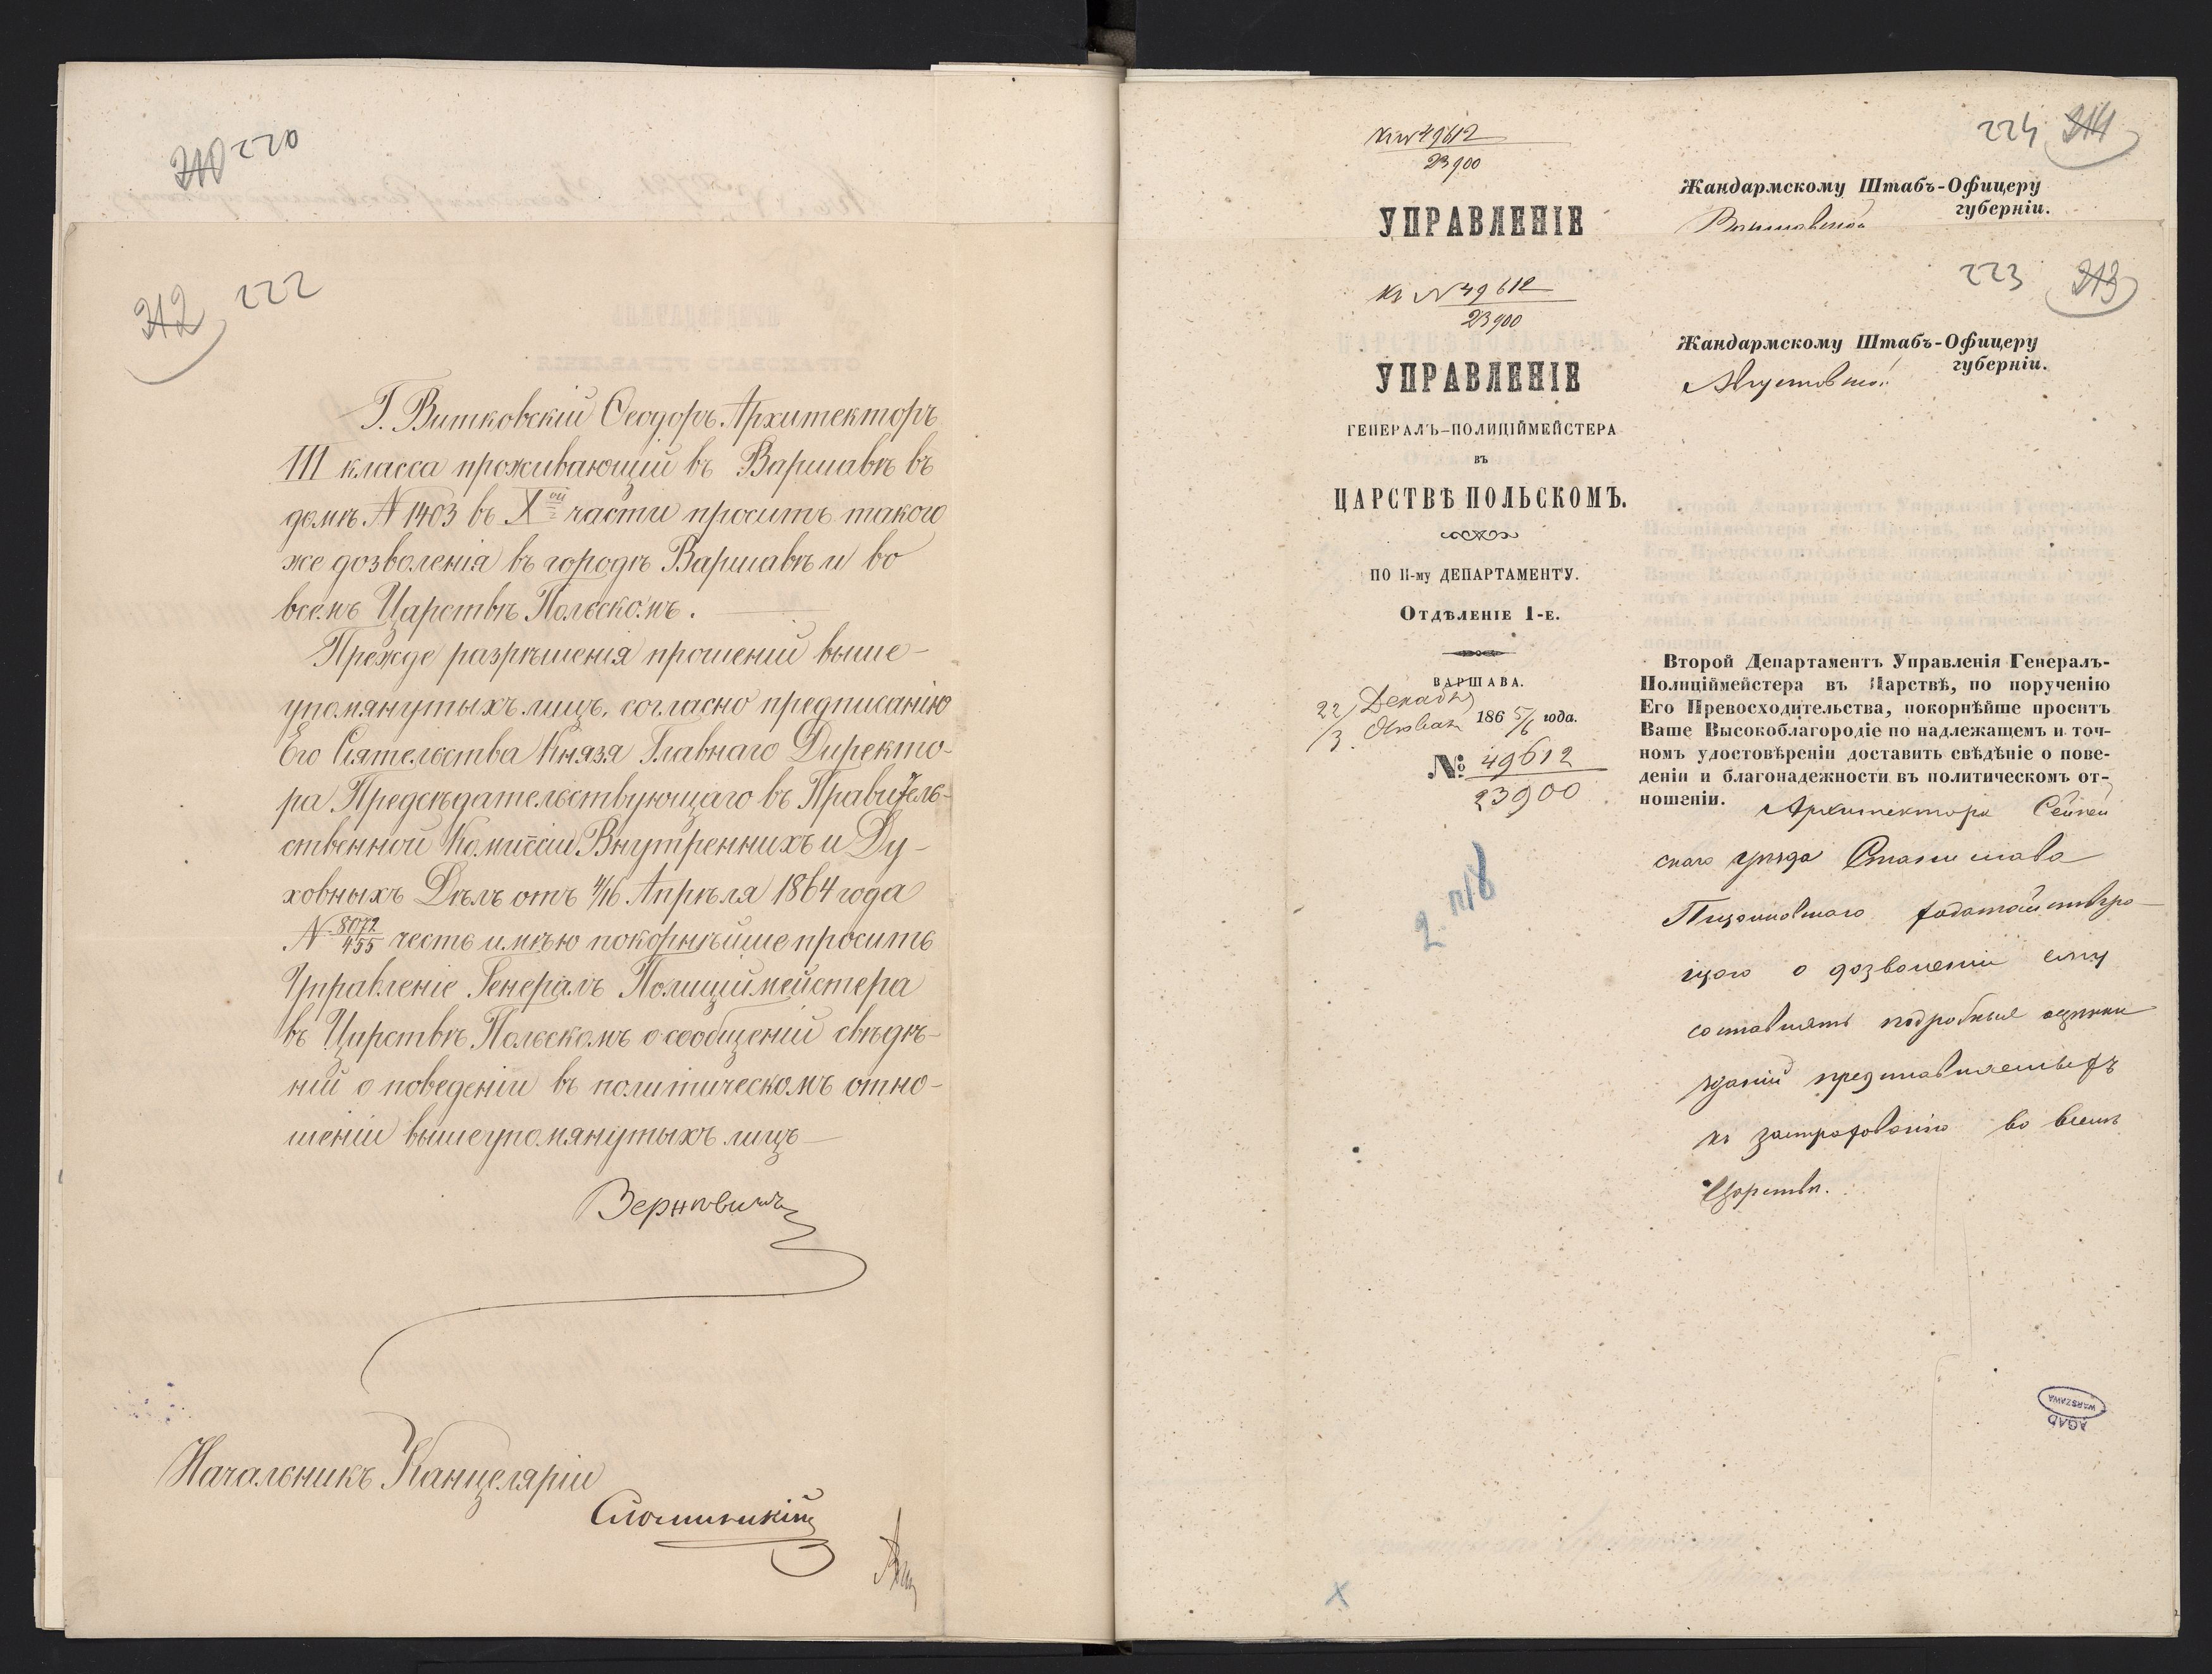 310 220
312 222
Г. Витковскій Ѳеодоръ Архитекторъ
III класса проживающій въ Варшавѣ въ
домѣ N 1403 въ X ой части проситъ такого
же дозволенія въ городѣ Варшавѣ и во
всемъ Царствѣ Польскомъ.
Прежде разрѣшенія прошеній выше-
упомянутыхъ лицъ, согласно предписанію
Его Сіятельства Князя Главнаго Директо-
ра Предсѣдательствующаго въ Правитель-
ственной Комиссіи Внутреннихъ и Ду-
ховныхъ Дѣлъ отъ 4/16 Апрѣля 1864 года
N 8072/455 честь имѣю покорнѣйше просить
Управленіе Генералъ Полиціймейстера
въ Царствѣ Польскомъ о сообщеній свѣдѣ-
ній о поведеніи въ политическомъ отно-
шеніи вышеупомянутыхъ лицъ
Начальникъ Канцеляріи
224 314
Къ N 49612
23900
Жандармскому Штабъ-Офицеру
губерніи.
УПРАВЛЕНІЕ
223 313
Къ N 49612
23900
Жандармскому Штабъ-Офицеру
губерніи.
Августовской
УПРАВЛЕНІЕ
ГЕНЕРАЛЪ-ПОЛИЦІЙМЕЙСТЕРА
ВЪ
ЦАРСТВѢ ПОЛЬСКОМЪ.
ПО II-му ДЕПАРТАМЕНТУ.
Отдѣленіе 1-е.
ВАРШАВА.
22/3 Декабря Января 1865/6 года.
№ 49612
23900
Второй Департаментъ Управленія Генералъ-
Полиціймейстера въ Царствѣ, по порученію
Его Превосходительства, покорнѣйше проситъ
Ваше Высокоблагородіе по надлежащемъ и точ-
номъ удостовѣреніи доставить свѣдѣніе о пове-
деніи и благонадежности въ политическомъ от-
ношеніи. Архитектора Сейней
скаго уѣзда Станислава
ходатайствую-
щаго о дозволеніи ему
составлять подробныя оцѣнки
зданій представляемыхъ
къ застрахованію во всемъ
Царствѣ.
AGAD
WARSZAWA